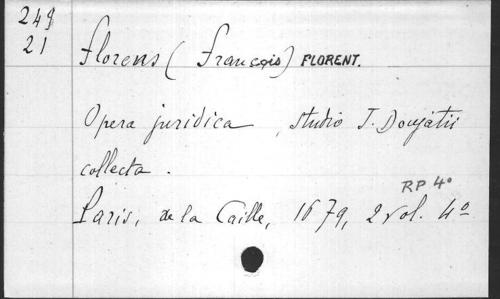 249
21
Florens (François) FLORENT.
Opera juridica, studio J. Doujatii
collecta.
RP 4°
Paris, de la Caille, 1679, 2 vol. 4°